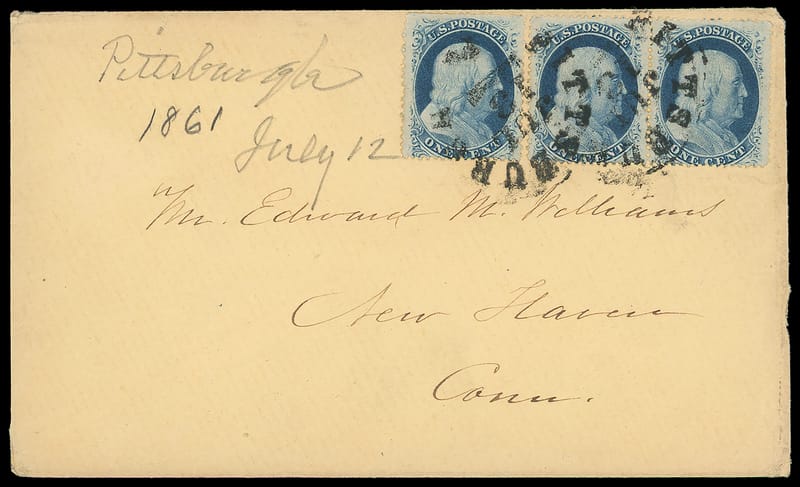 Pittsburgh
1861
July 12
U.S. POSTAGE
ONE CENT
U.S. POSTAGE
ONE CENT
U.S. POSTAGE
ONE CENT
Mr. Edward M. Williams
New Haven
Conn.